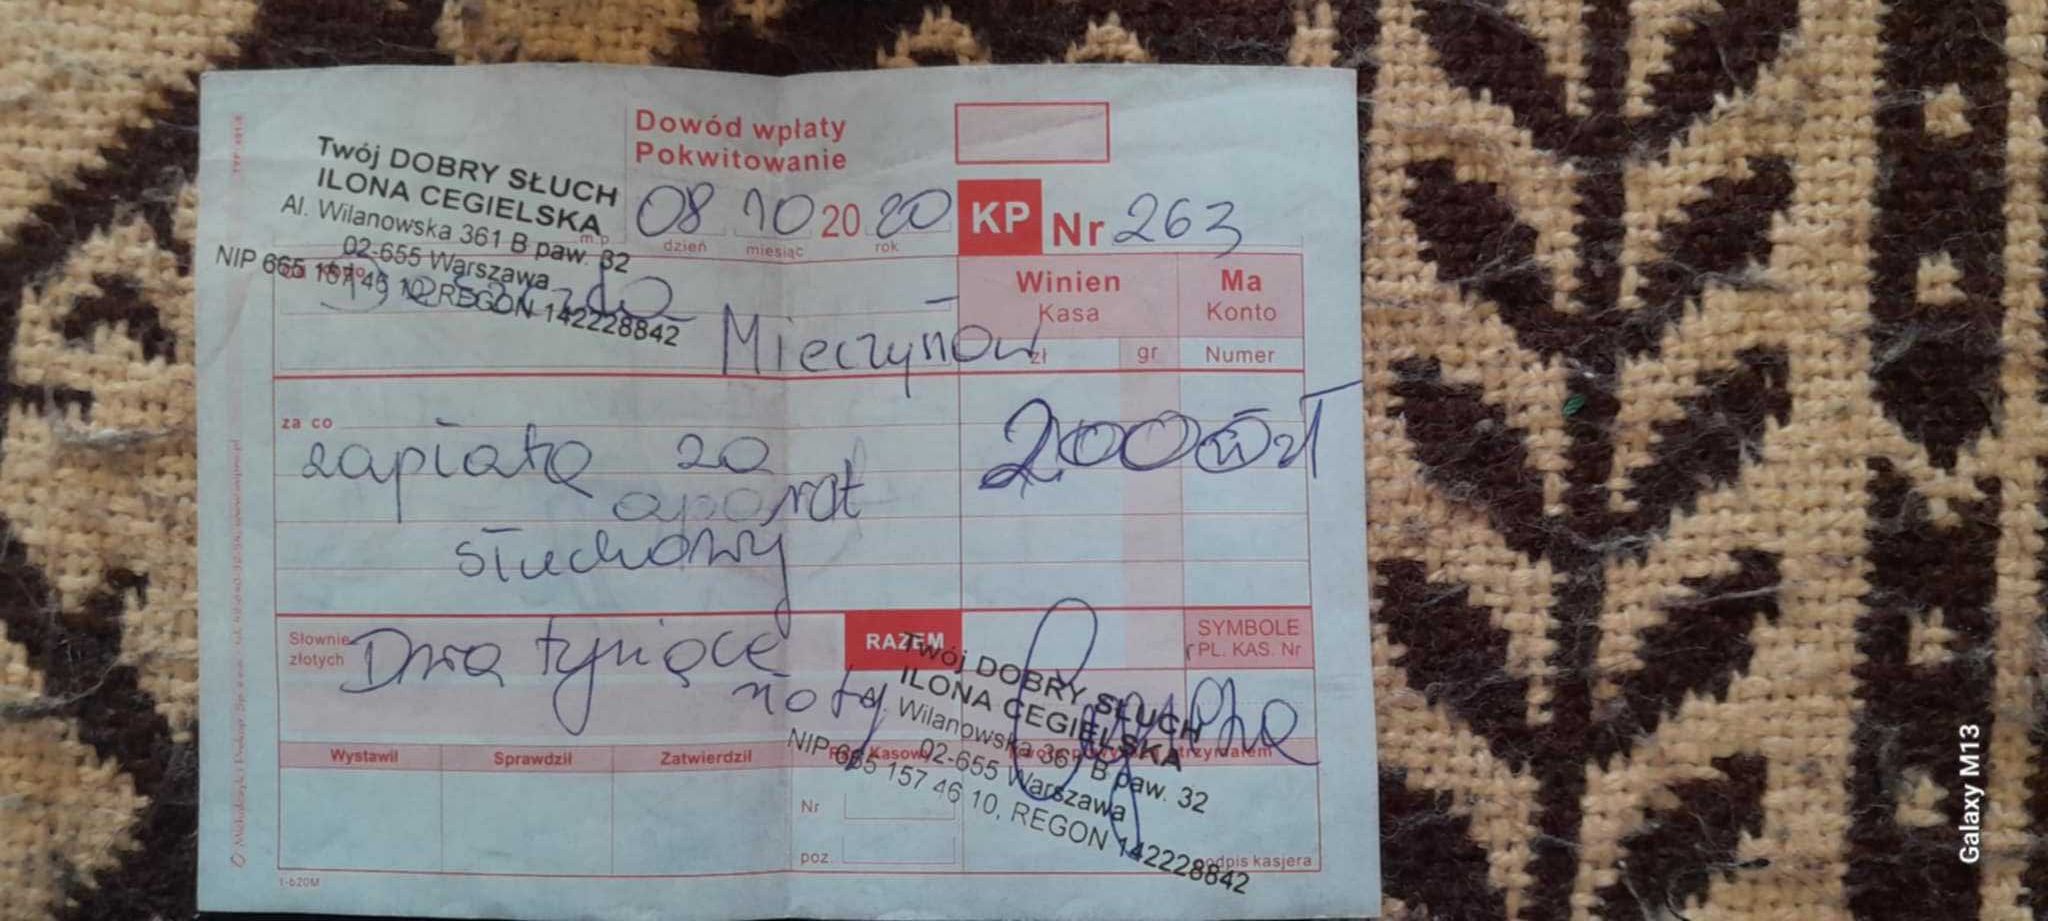 Dowód wpłaty
Pokwitowanie
Twój DOBRY SŁUCH
ILONA CEGIELSKA
Al. Wilanowska 361 B paw. 32
02-655 Warszawa
NIP 665 157 46 10, REGON 142228842
m.p.
08 10 20 20
dzień miesiąc rok
KP Nr 263
Winien Ma
Kasa Konto
zł gr Numer
za co
zapłatę za 2000 zł
aparat
słuchowy
Słownie
złotych
Dwa tysiące
RAZEM
SYMBOLE
PL. KAS. Nr
Twój DOBRY SŁUCH
ILONA CEGIELSKA
Al. Wilanowska 361 B paw. 32
02-655 Warszawa
NIP 665 157 46 10, REGON 142228842
Wystawił Sprawdził Zatwierdził
Nr
poz.
podpis kasjera
1-620M
Galaxy M13